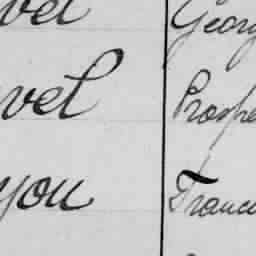 vel Georg
vel Prospe
you Franci